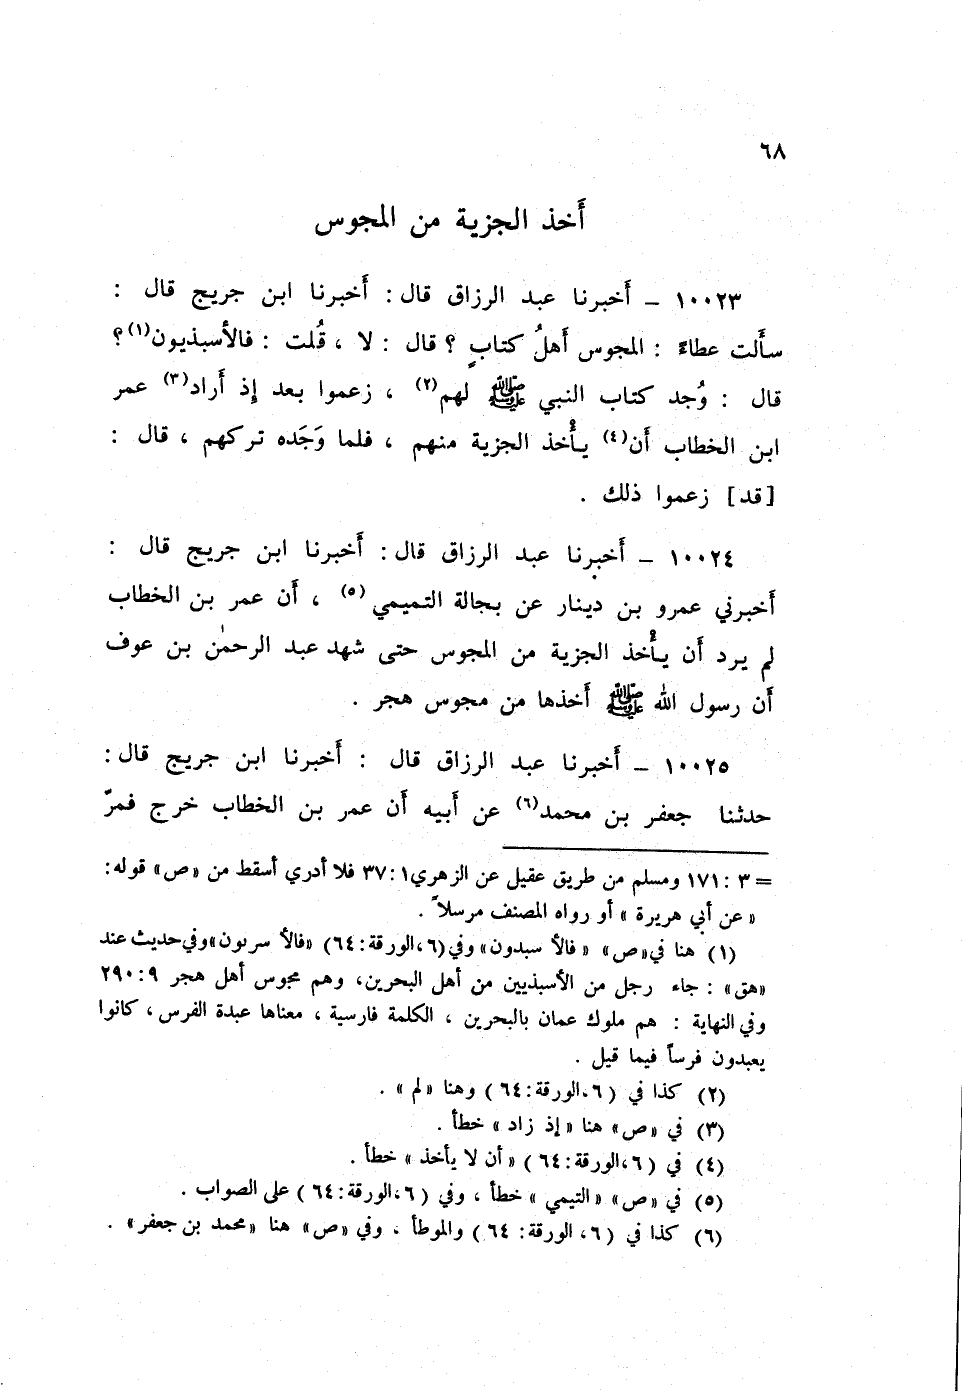 ٦٨
أَخذ الجزية من المجوس
١٠٠٢٣ ـ أَخبرنا عبد الرزاق قال : أَخبرنا ابن جريج قال :
سأَلت عطاءً : المجوس أَهلُ كتابٍ ؟ قال : لا ، قُلت : فالأسبذيون(١) ؟
قال : وُجد كتاب النبي ﷺ لهم(٢) ، زعموا بعد إِذ أَراد(٣) عمر
ابن الخطاب أَن(٤) يأْخذ الجزية منهم ، فلما وَجَده تركهم ، قال :
[قد] زعموا ذلك .
١٠٠٢٤ ـ أَخبرنا عبد الرزاق قال : أَخبرنا ابن جريج قال :
أَخبرني عمرو بن دينار عن بجالة التميمي(٥) ، أَن عمر بن الخطاب
لم يرد أَن يأْخذ الجزية من المجوس حتى شهد عبد الرحمٰن بن عوف
أَن رسول الله ﷺ أَخذها من مجوس هجر .
١٠٠٢٥ ـ أَخبرنا عبد الرزاق قال : أَخبرنا ابن جريج قال :
حدثنا جعفر بن محمد(٦) عن أَبيه أَن عمر بن الخطاب خرج فمرّ
= ٣ : ١٧١ ومسلم من طريق عقيل عن الزهري ١ : ٣٧ فلا أدري أسقط من «ص» قوله:
« عن أبي هريرة » أو رواه المصنف مرسلاً .
(١) هنا في «ص» « فالأ سبدون» وفي (٦، الورقة: ٦٤) «فالأ سربون» وفي حديث عند
«هق» : جاء رجل من الأسبذيين من أهل البحرين، وهم مجوس أهل هجر ٩ : ٢٩٠
وفي النهاية : هم ملوك عمان بالبحرين ، الكلمة فارسية ، معناها عبدة الفرس ، كانوا
يعبدون فرساً فيما قيل .
(٢) كذا في (٦، الورقة: ٦٤) وهنا « لم » .
(٣) في «ص» هنا « إذ زاد » خطأ .
(٤) في (٦، الورقة: ٦٤) « أن لا يأخذ » خطأ .
(٥) في «ص» « التيمي » خطأ ، وفي (٦، الورقة: ٦٤) على الصواب .
(٦) كذا في (٦، الورقة: ٦٤) والموطأ ، وفي «ص» هنا «محمد بن جعفر» .